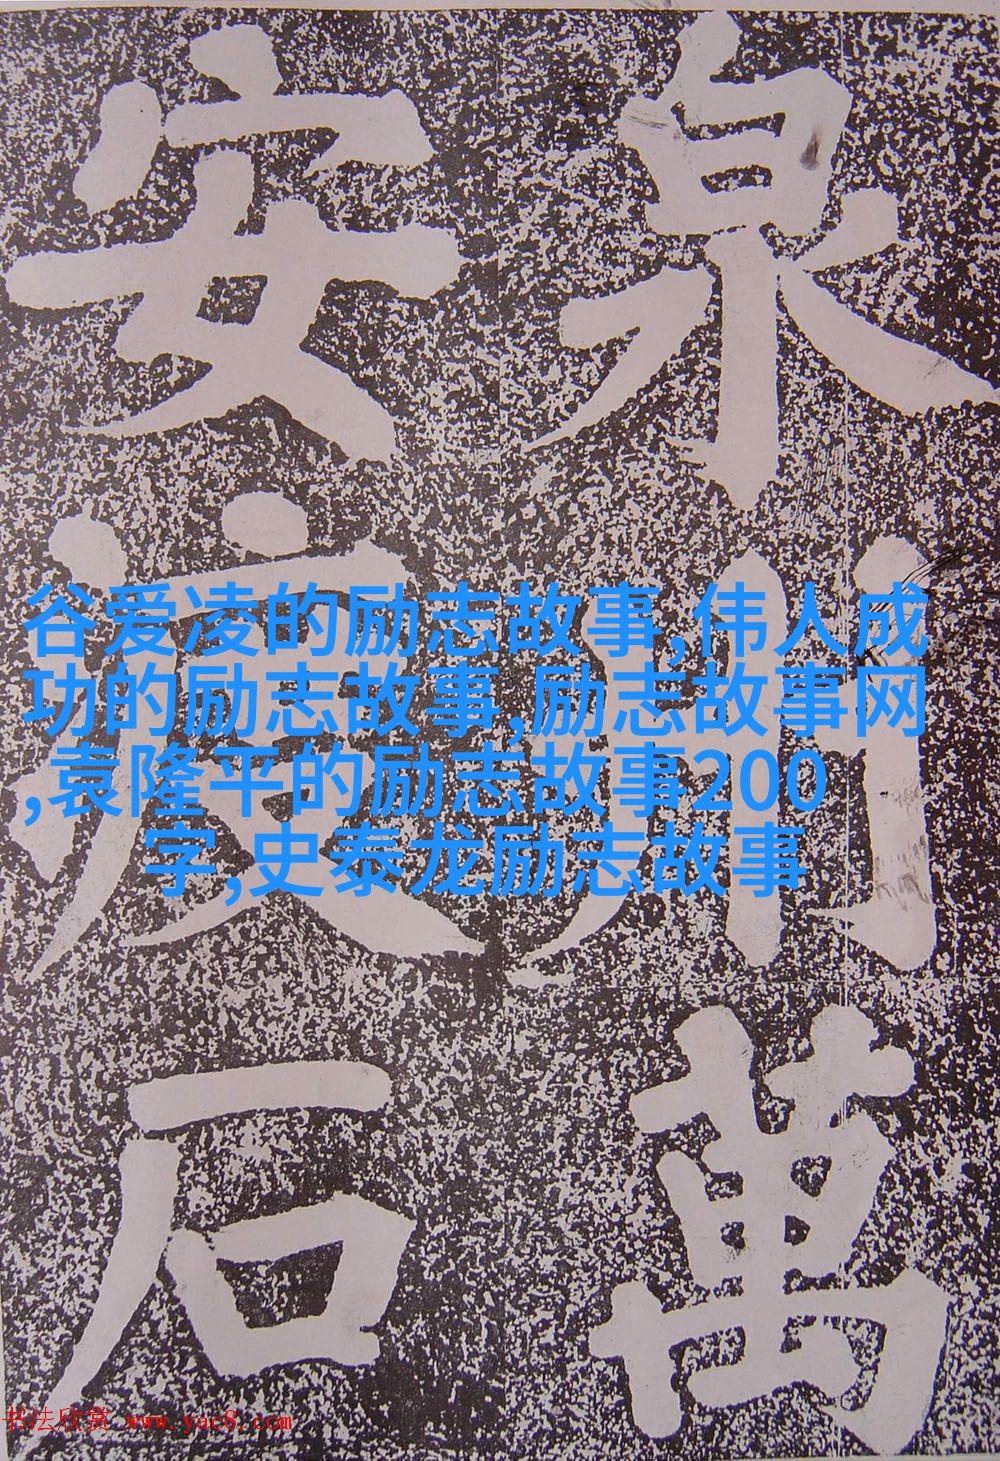 泉州萬
安渡石
谷爱凌的励志故事,伟人成
功的励志故事,励志故事网
,袁隆平的励志故事200
字,史泰龙励志故事
书法欣赏 www.yac8.com